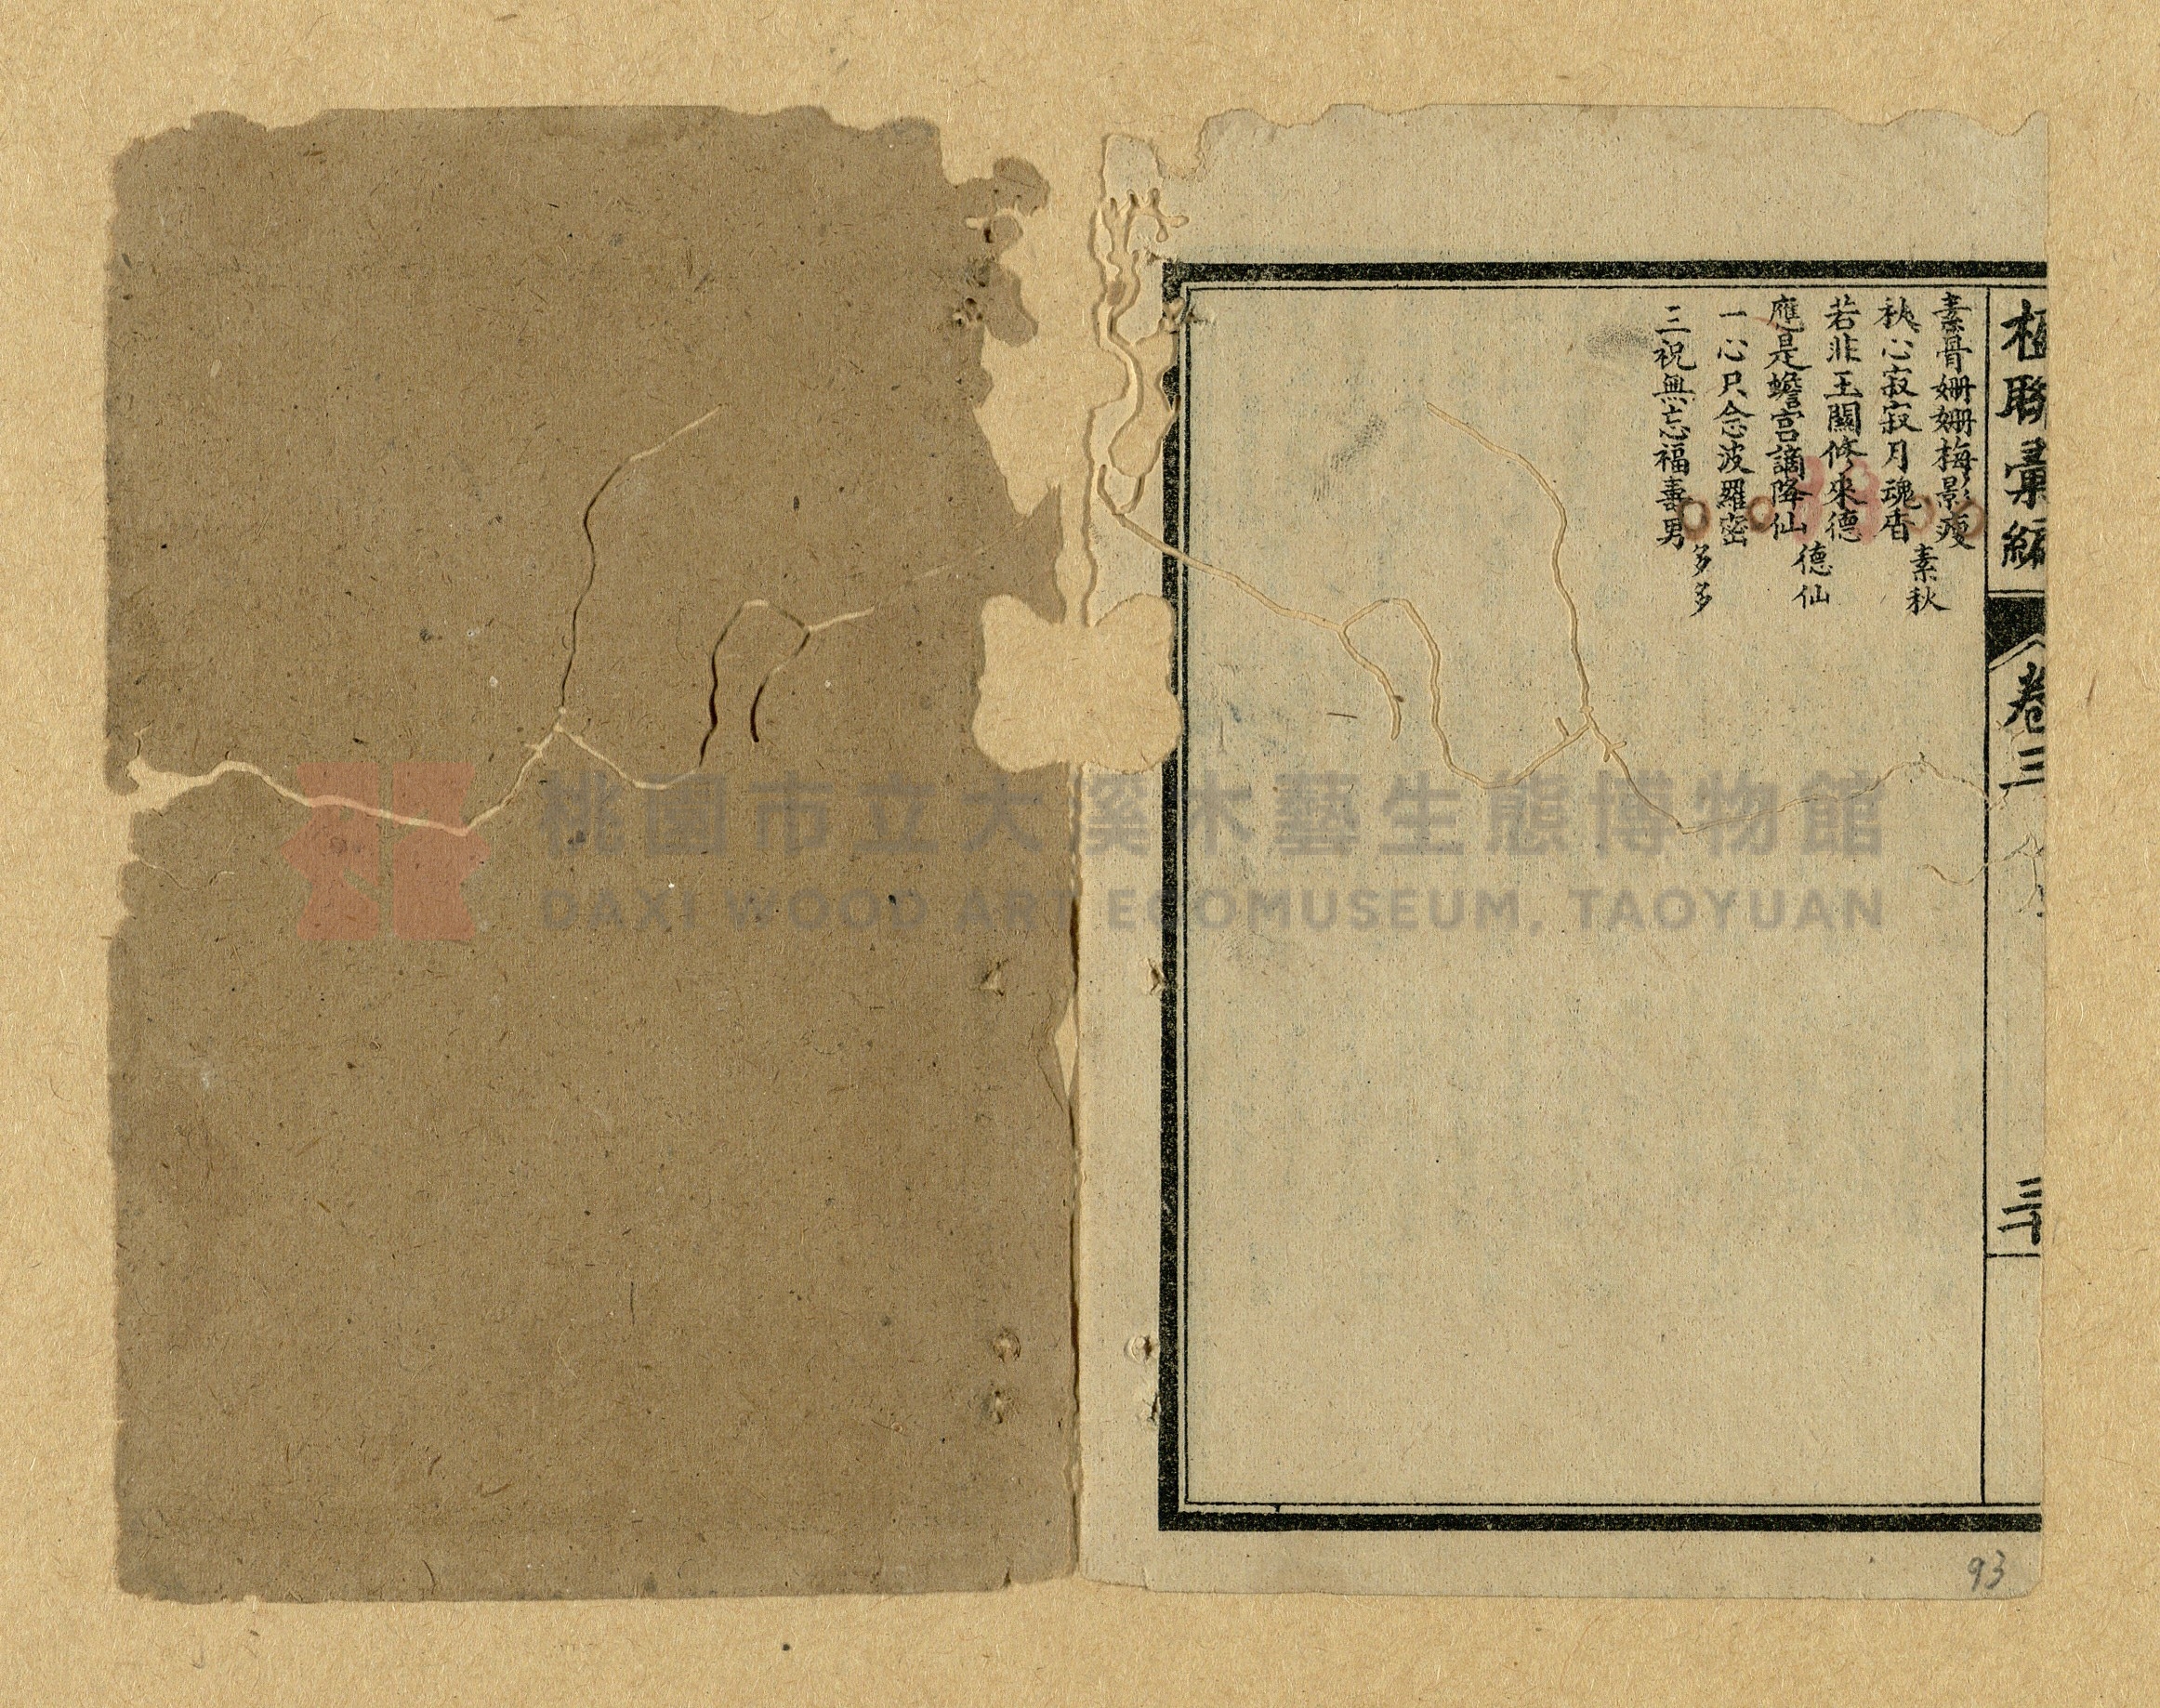 聯彙編
卷三
三十
素骨姍姍梅影瘦
秋心寂寂月魂香
素秋
若非玉闕修來德
應是蟾宮謫降仙
德仙
一心只念波羅密
三祝無忘福壽男
多多
93
桃園市立大溪木藝生態博物館
DAXI WOOD ART ECOMUSEUM, TAOYUAN